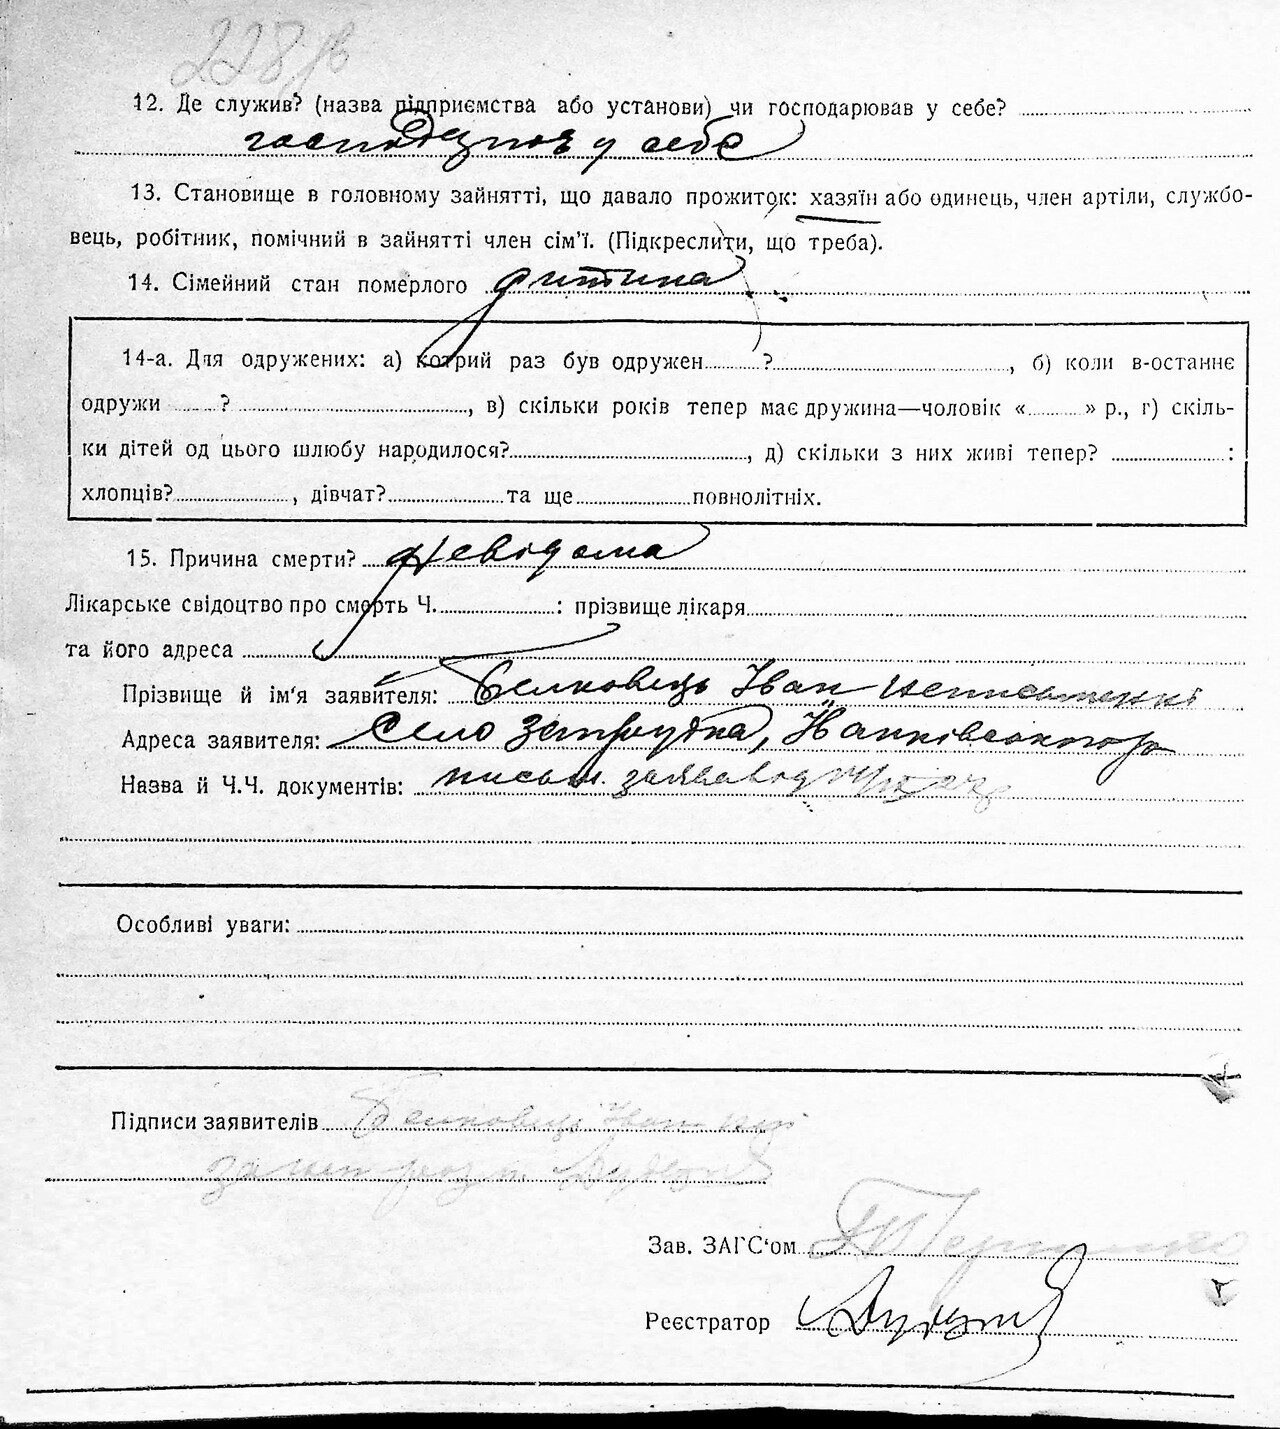 228 зв
12. Де служив? (назва підприємства або установи) чи господарював у себе?
господарює у себе
13. Становище в головному зайнятті, що давало прожиток: хазяїн або одинець, член артіли, службо-
вець, робітник, помічний в зайнятті член сім'ї. (Підкреслити, що треба).
14. Сімейний стан померлого дитина
14-а. Для одружених: а) котрий раз був одружен ? , б) коли в-останнє
одружи ? , в) скільки років тепер має дружина—чоловік « » р., г) скіль-
ки дітей од цього шлюбу народилося? , д) скільки з них живі тепер? :
хлопців? , дівчат? та ще повнолітніх.
15. Причина смерти? невідома
Лікарське свідоцтво про смерть Ч. : прізвище лікаря
та його адреса
Прізвище й ім'я заявителя: Іван неписьменні
Адреса заявителя: село
Назва й Ч.Ч. документів: письм. заява від
Особливі уваги:
Підписи заявителів Іван
Зав. ЗАГС'ом
Реєстратор